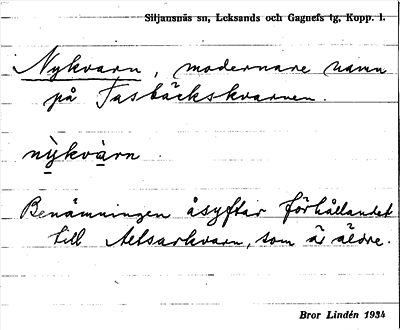 Siljansnäs sn, Leksands och Gagnefs tg, Kopp. l.
Nykvarn, modernare namn
på Tasbäckskvarnen.
nỳkvàrn.
Benämningen åsyftar förhållandet
till Aetsarkvarn, som är äldre.
Bror Lindén 1934